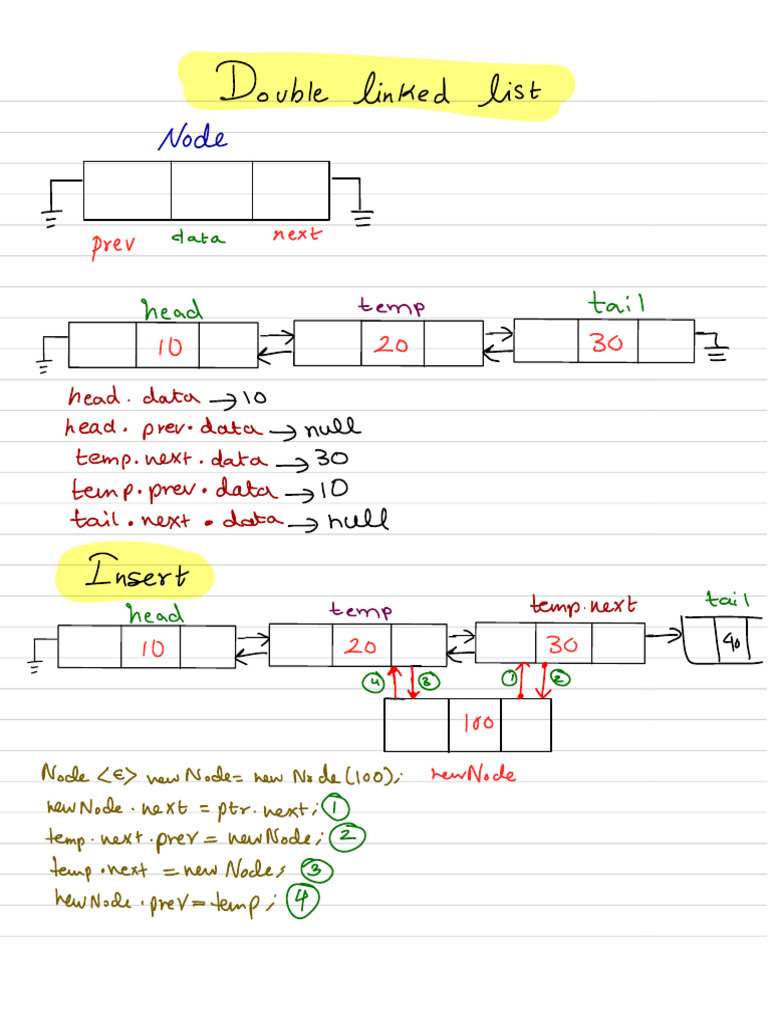 Double linked list
Node
prev data next
head temp tail
10 20 30
head. data → 10
head. prev. data → null
temp.next. data → 30
temp. prev. data → 10
tail. next . data → null
Insert
head temp temp.next tail
10 20 30 40
4 3 1 2
100
Node <E> newNode= new Node(100); newNode
newNode.next = ptr.next; 1
temp.next.prev = newNode; 2
temp.next = newNode; 3
newNode.prev = temp; 4